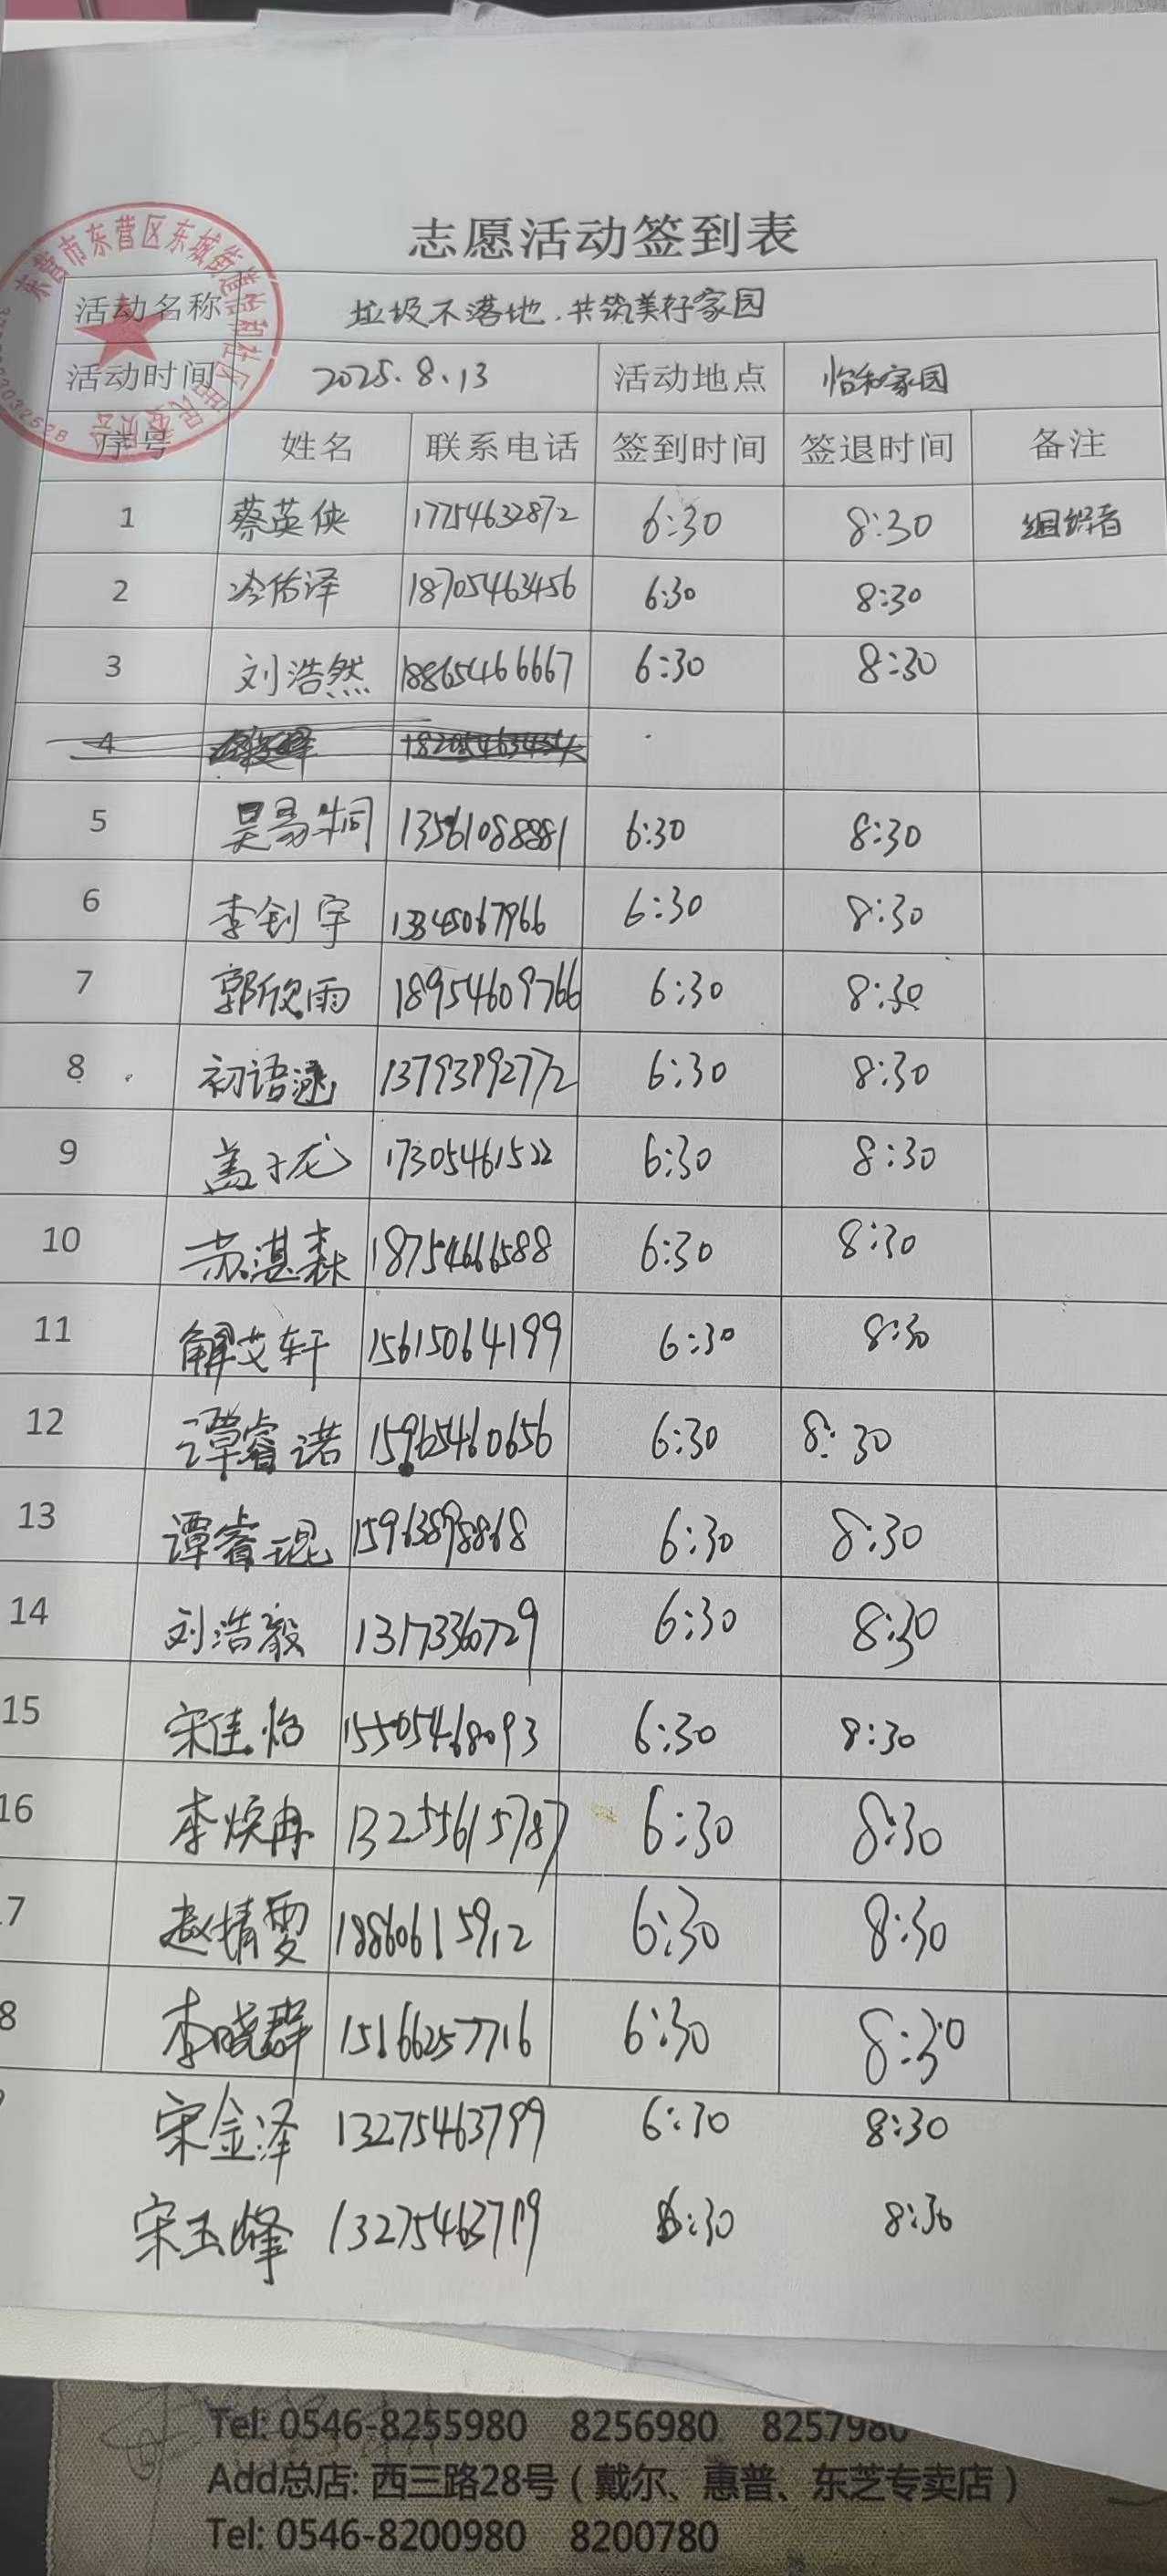 志愿活动签到表
东营市东营区东城街道怡和社区居民委员会
活动名称 垃圾不落地,共筑美好家园
活动时间 2025.8.13 活动地点 怡和家园
序号 姓名 联系电话 签到时间 签退时间 备注
1 蔡英侠 17754632872 6:30 8:30 组织者
2 冷佑泽 18705463456 6:30 8:30
3 刘浩然 18865466667 6:30 8:30
4
5 吴易桐 13561088881 6:30 8:30
6 李钊宇 13345067966 6:30 8:30
7 郭欣雨 18954609766 6:30 8:30
8 初语涵 13793792772 6:30 8:30
9 盖子龙 17305461522 6:30 8:30
10 苏湛森 18754666588 6:30 8:30
11 解艾轩 15615064199 6:30 8:30
12 谭睿诺 15965460656 6:30 8:30
13 谭睿琨 15963898868 6:30 8:30
14 刘浩毅 1317336729 6:30 8:30
15 宋佳怡 15505468093 6:30 8:30
16 李焕冉 13255615787 6:30 8:30
7 赵婧雯 18860615912 6:30 8:30
8 李晓群 15166257716 6:30 8:30
宋金泽 13275463799 6:30 8:30
宋玉峰 13275463719 6:30 8:30
Tel: 0546-8255980 8256980 8257980
Add总店: 西三路28号(戴尔、惠普、东芝专卖店)
Tel: 0546-8200980 8200780